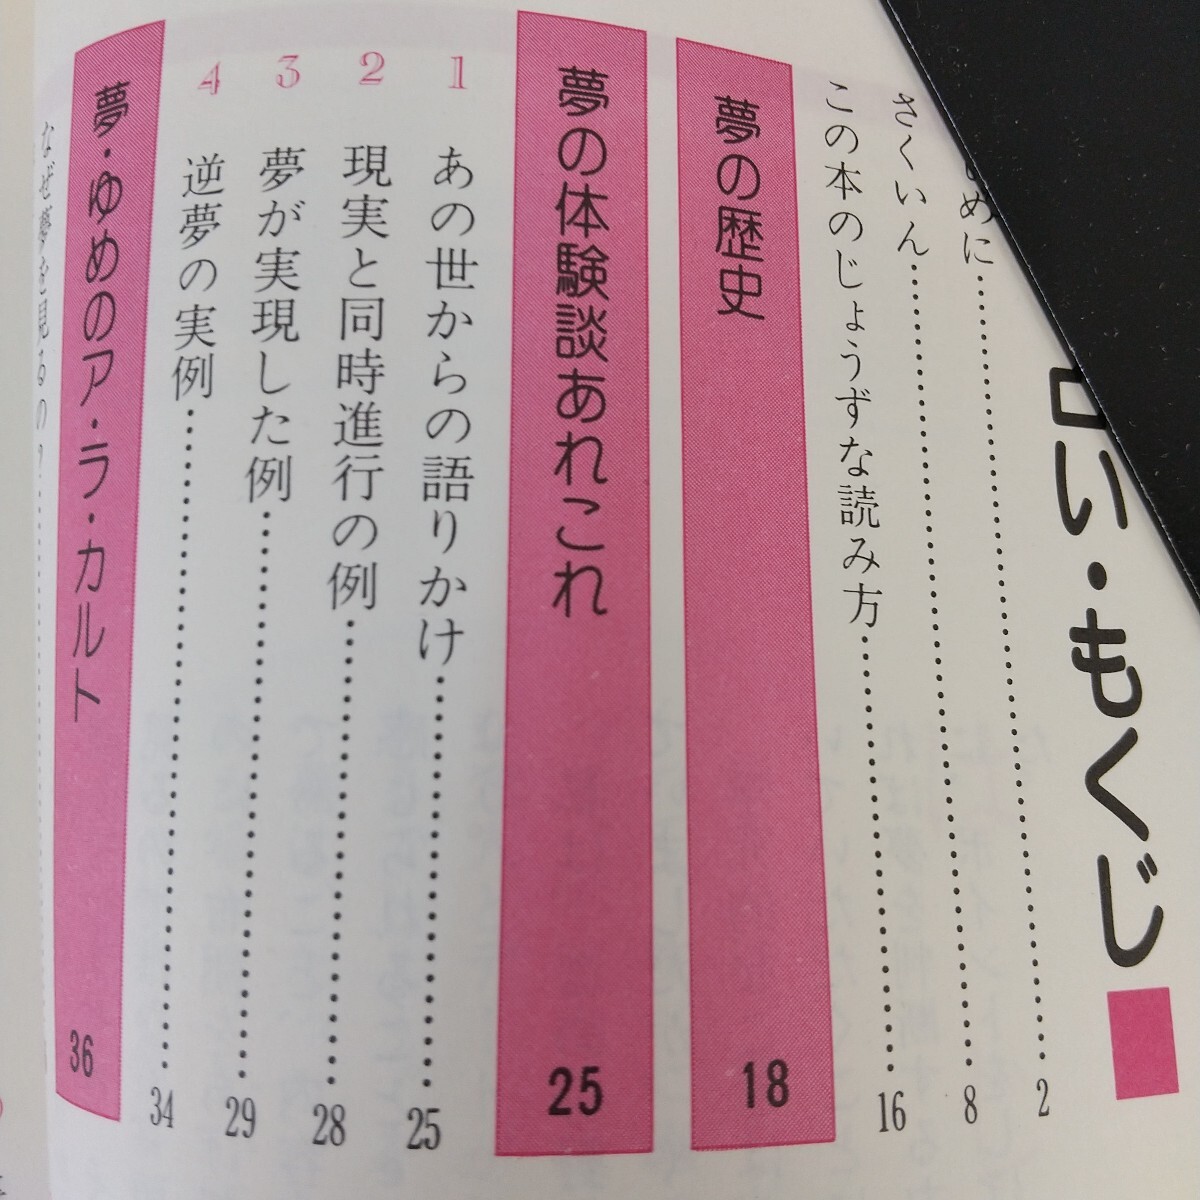 い・もくじ
めに……………2
さくいん……………8
この本のじょうずな読み方……………16
夢の歴史 18
夢の体験談あれこれ 25
1 あの世からの語りかけ……………25
2 現実と同時進行の例……………28
3 夢が実現した例……………29
4 逆夢の実例……………34
夢・ゆめのア・ラ・カルト 36
なぜ夢を見るの?……………